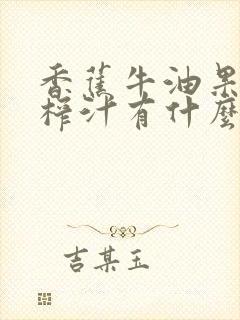 香蕉牛油果
榨汁有什麼
吉某玉